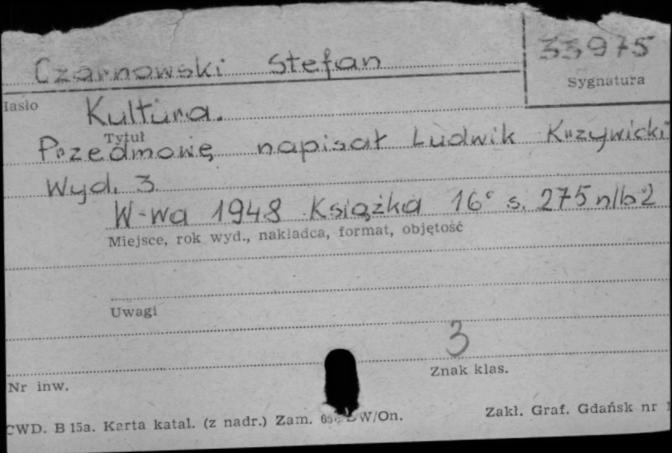 Czarnowski Stefan
33975
Sygnatura
Hasło
Kultura.
Tytuł
Przedmowę napisał Ludwik Krzywicki
Wyd. 3
W-wa 1948 Książka 16° s. 275 nlb 2
Miejsce, rok wyd., nakładca, format, objętość
Uwagi
3
Znak klas.
Nr inw.
CWD. B 15a. Karta katal. (z nadr.) Zam. W/On.
Zakł. Graf. Gdańsk nr 1